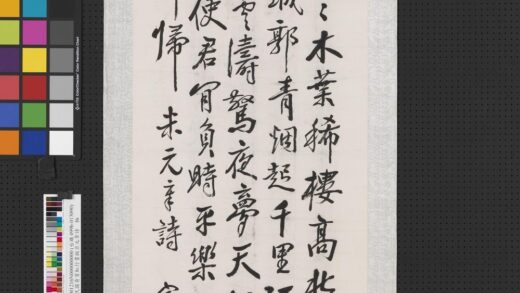 木葉稀樓高北
城郭青烟起千里
雲濤驚夜夢天
使君肯負時平樂
歸 米元章詩